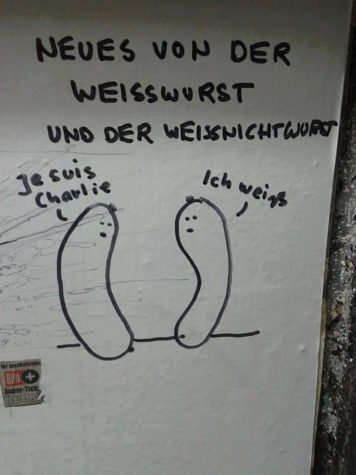 NEUES VON DER
WEISSWURST
UND DER WEISSNICHTWURST
Je suis
Charlie
Ich weiß